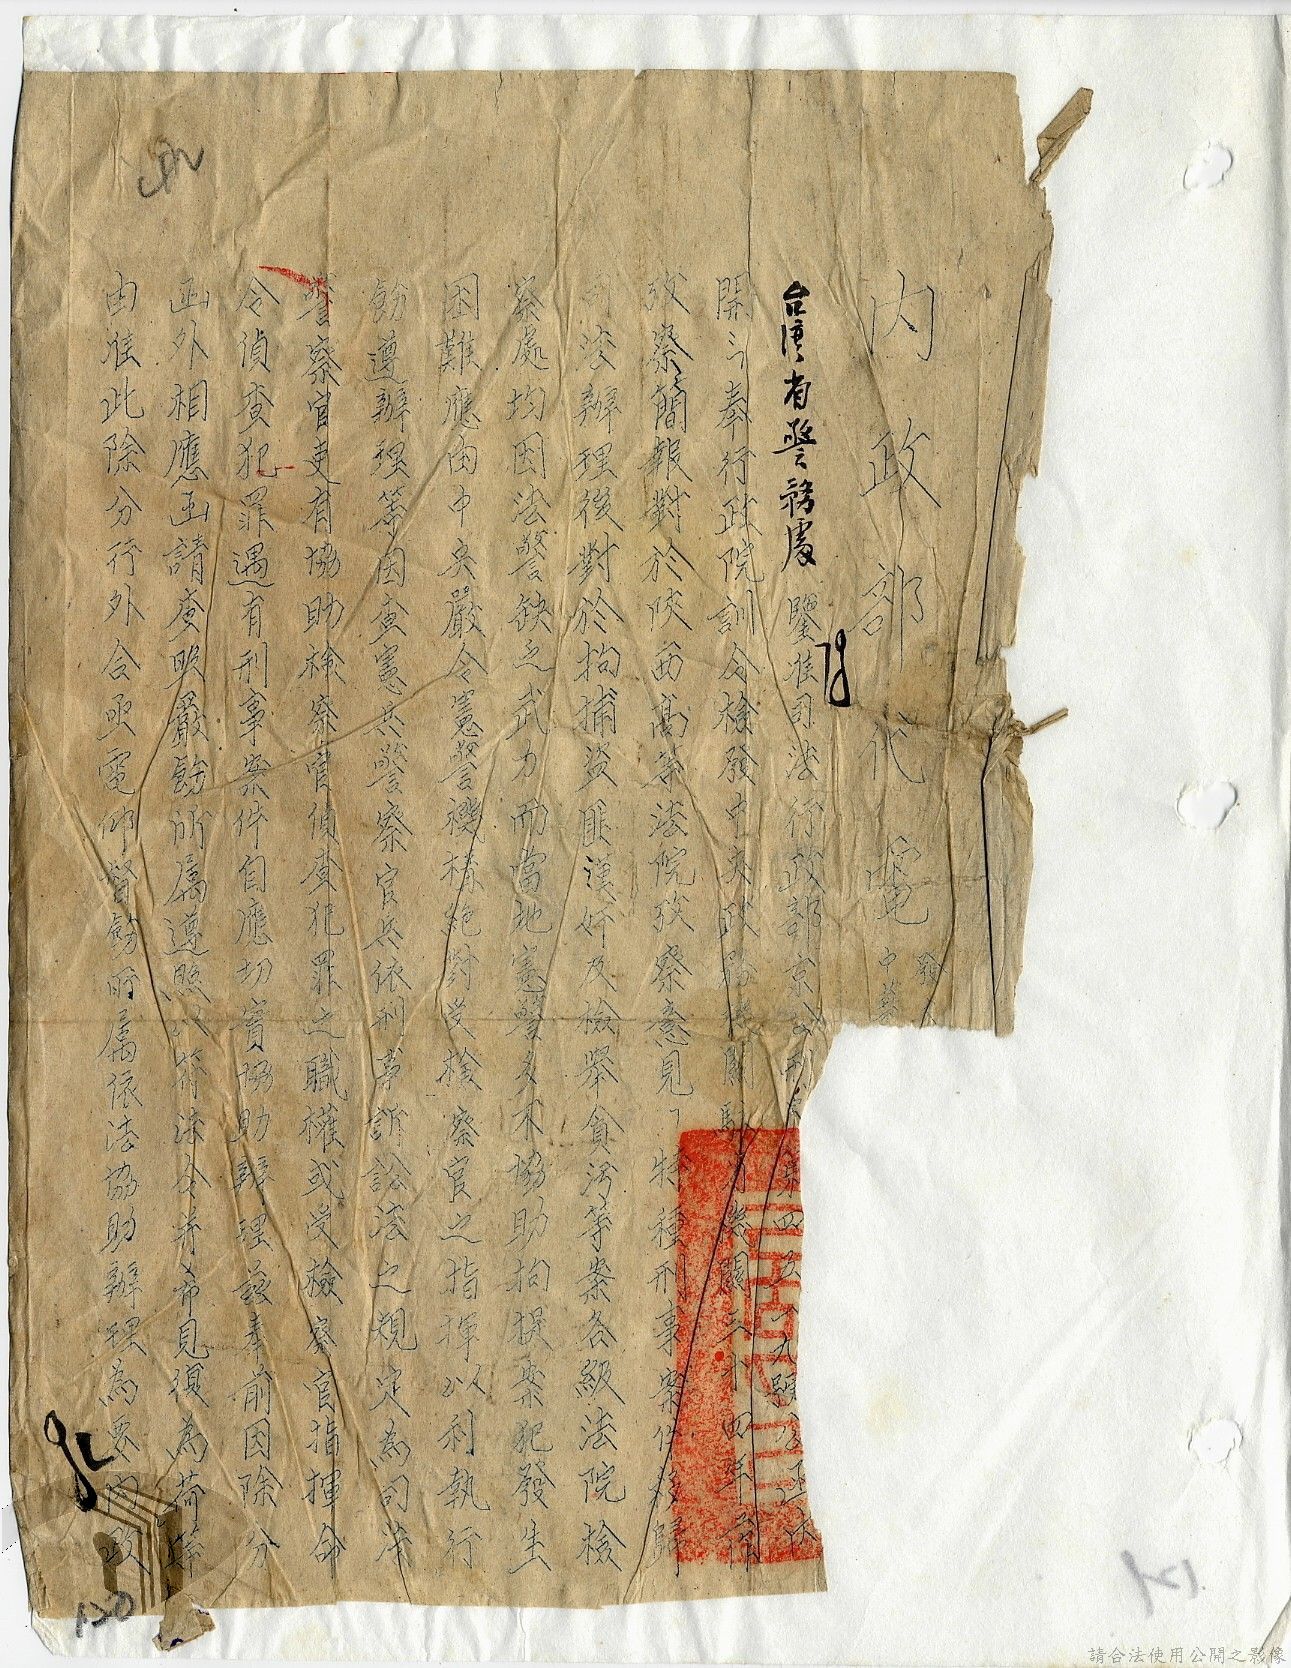 內政部代電
台灣省警務處鑒准司法行政部京
開「奉行政院訓令檢發中央政務機關
三十四年
攷察簡報對於陝西高等法院攷察意見「特種刑事案件移歸
司法辦理後對於拘捕盜匪漢奸及檢舉貪污等案各級法院檢
察處均因法警缺乏武力而當地憲警多不協助拘提案犯發生
困難應由中央嚴令憲警機構絶對受檢察官之指揮以利執行
飭遵辦理等因查憲兵警察官兵依刑事訴訟法之規定為司法
警察官吏有協助檢察官偵查犯罪之職權或受檢察官指揮命
令偵查犯罪遇有刑事案件自應切實協助辦理茲奉前因除分
函外相應函請查照嚴飭所属遵照以符法令并希見復為荷等
由准此除分行外合亟電仰督飭所属依法協助辦理為要內政
120
請合法使用公開之影像